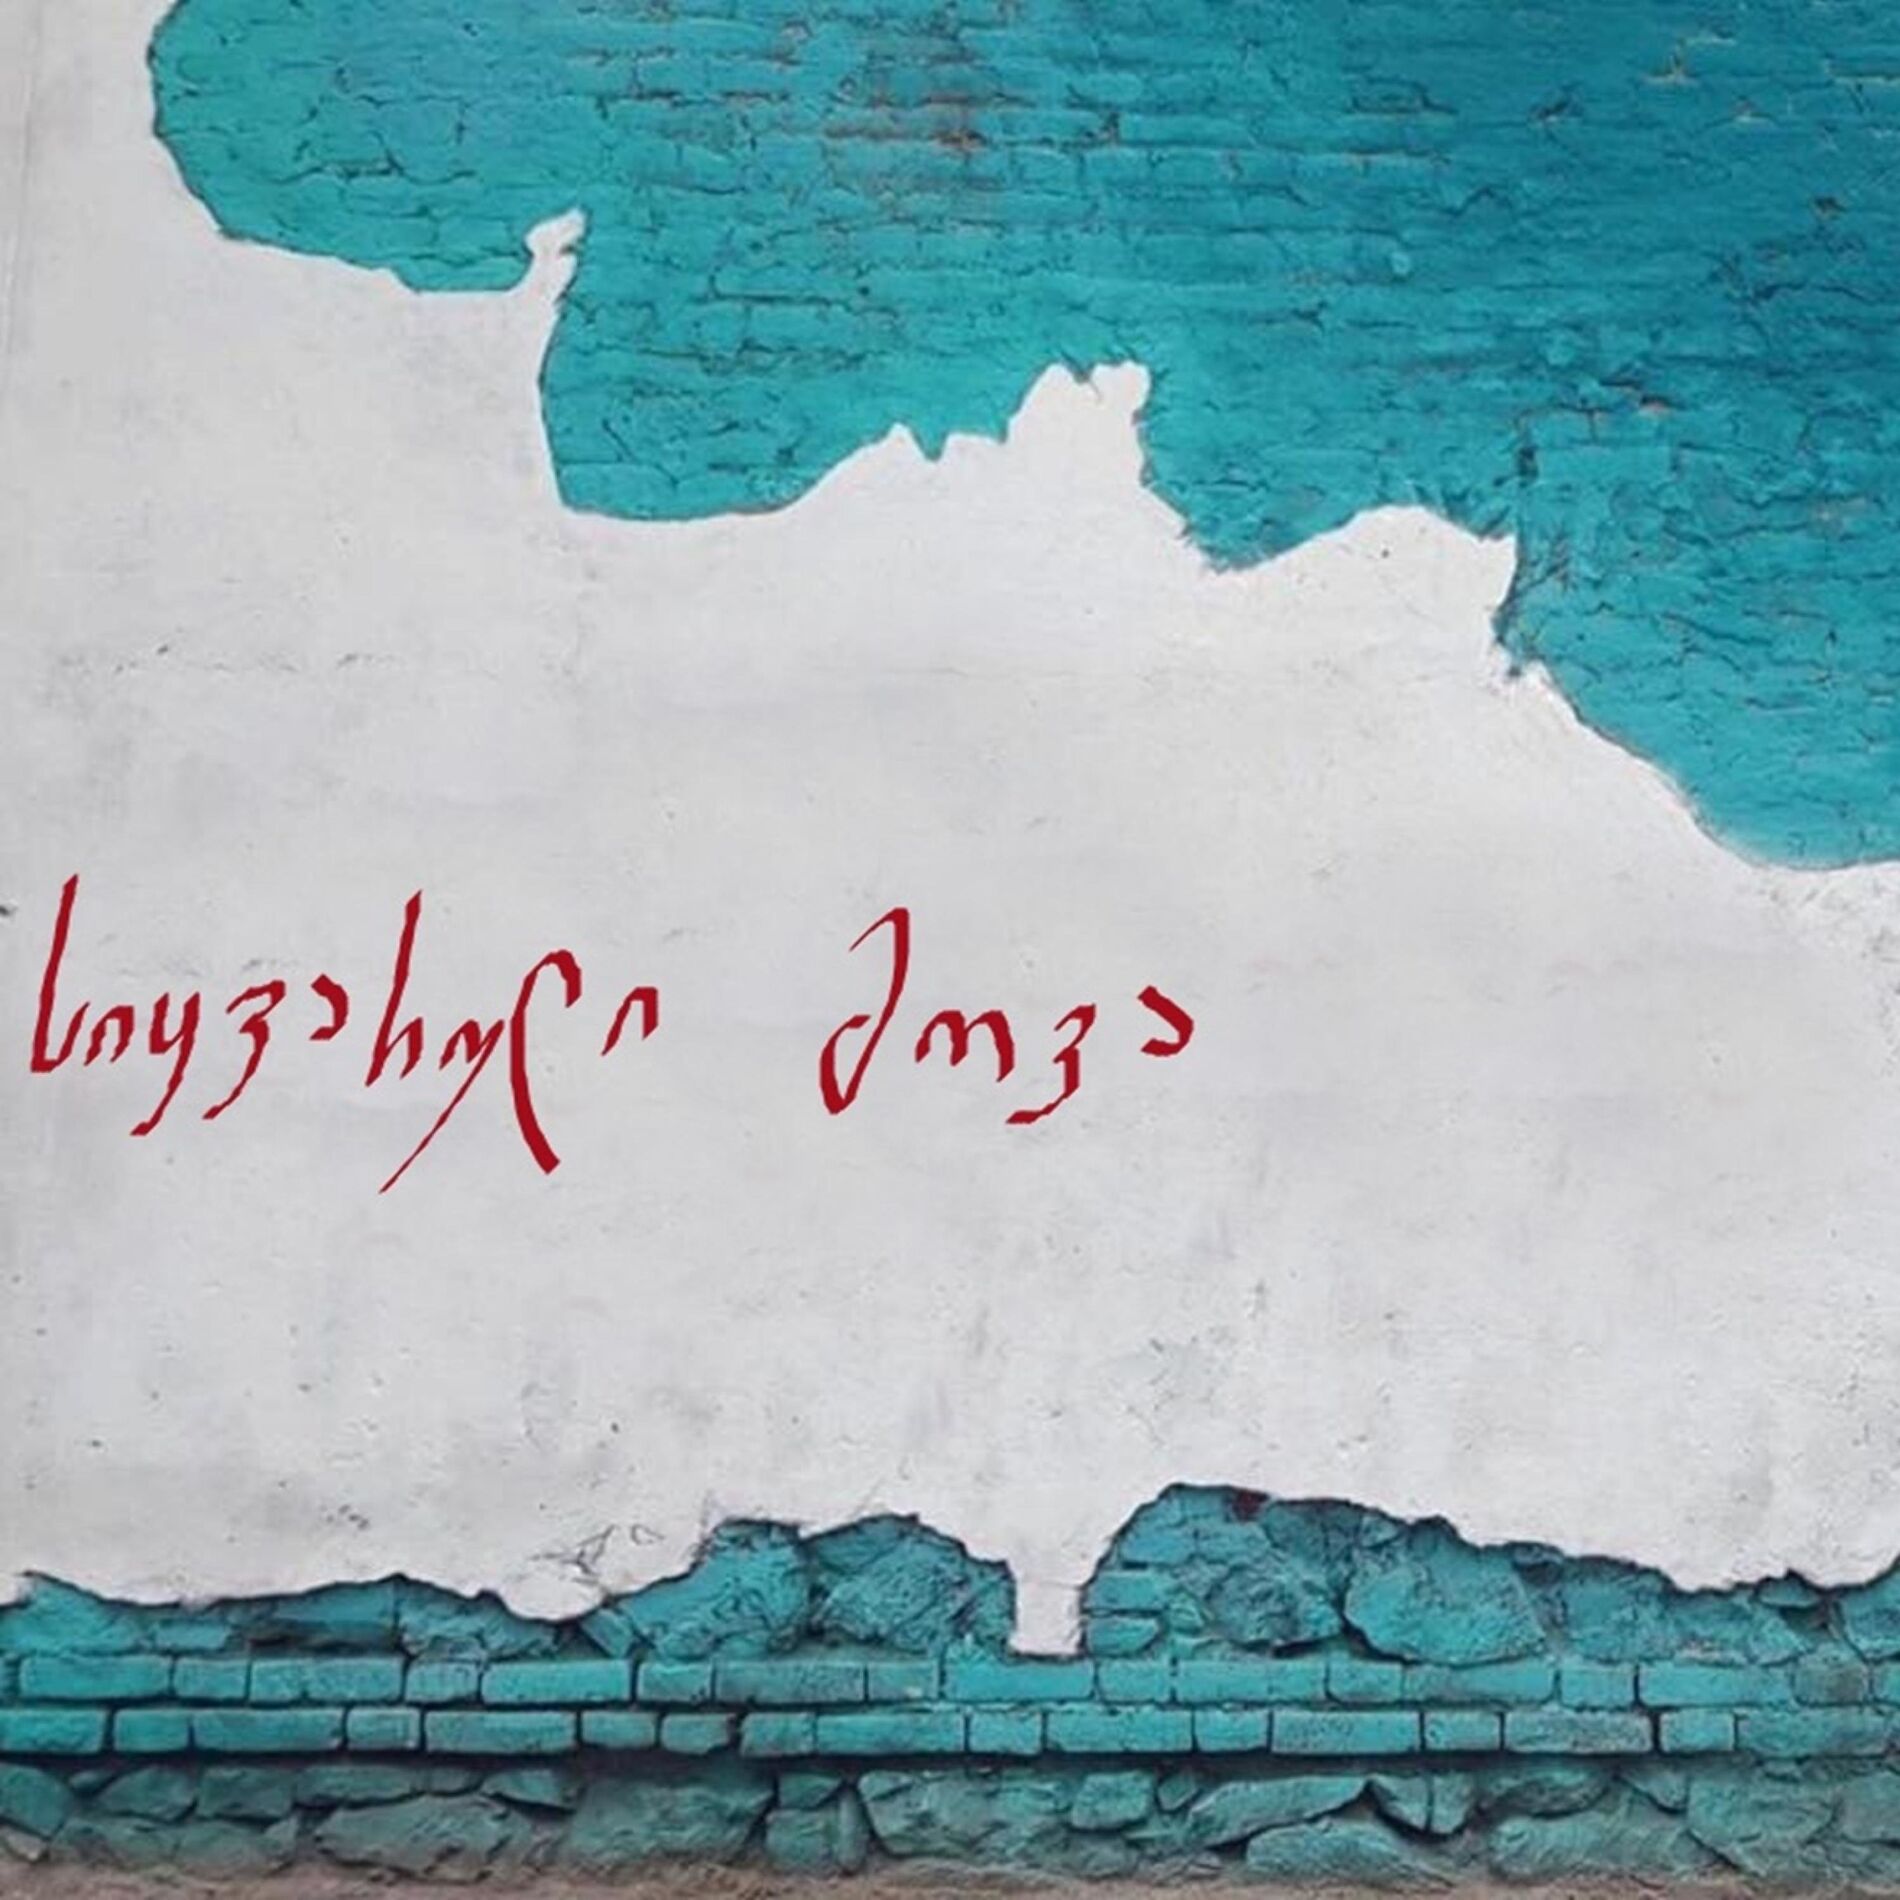 სიყვარული მოვა